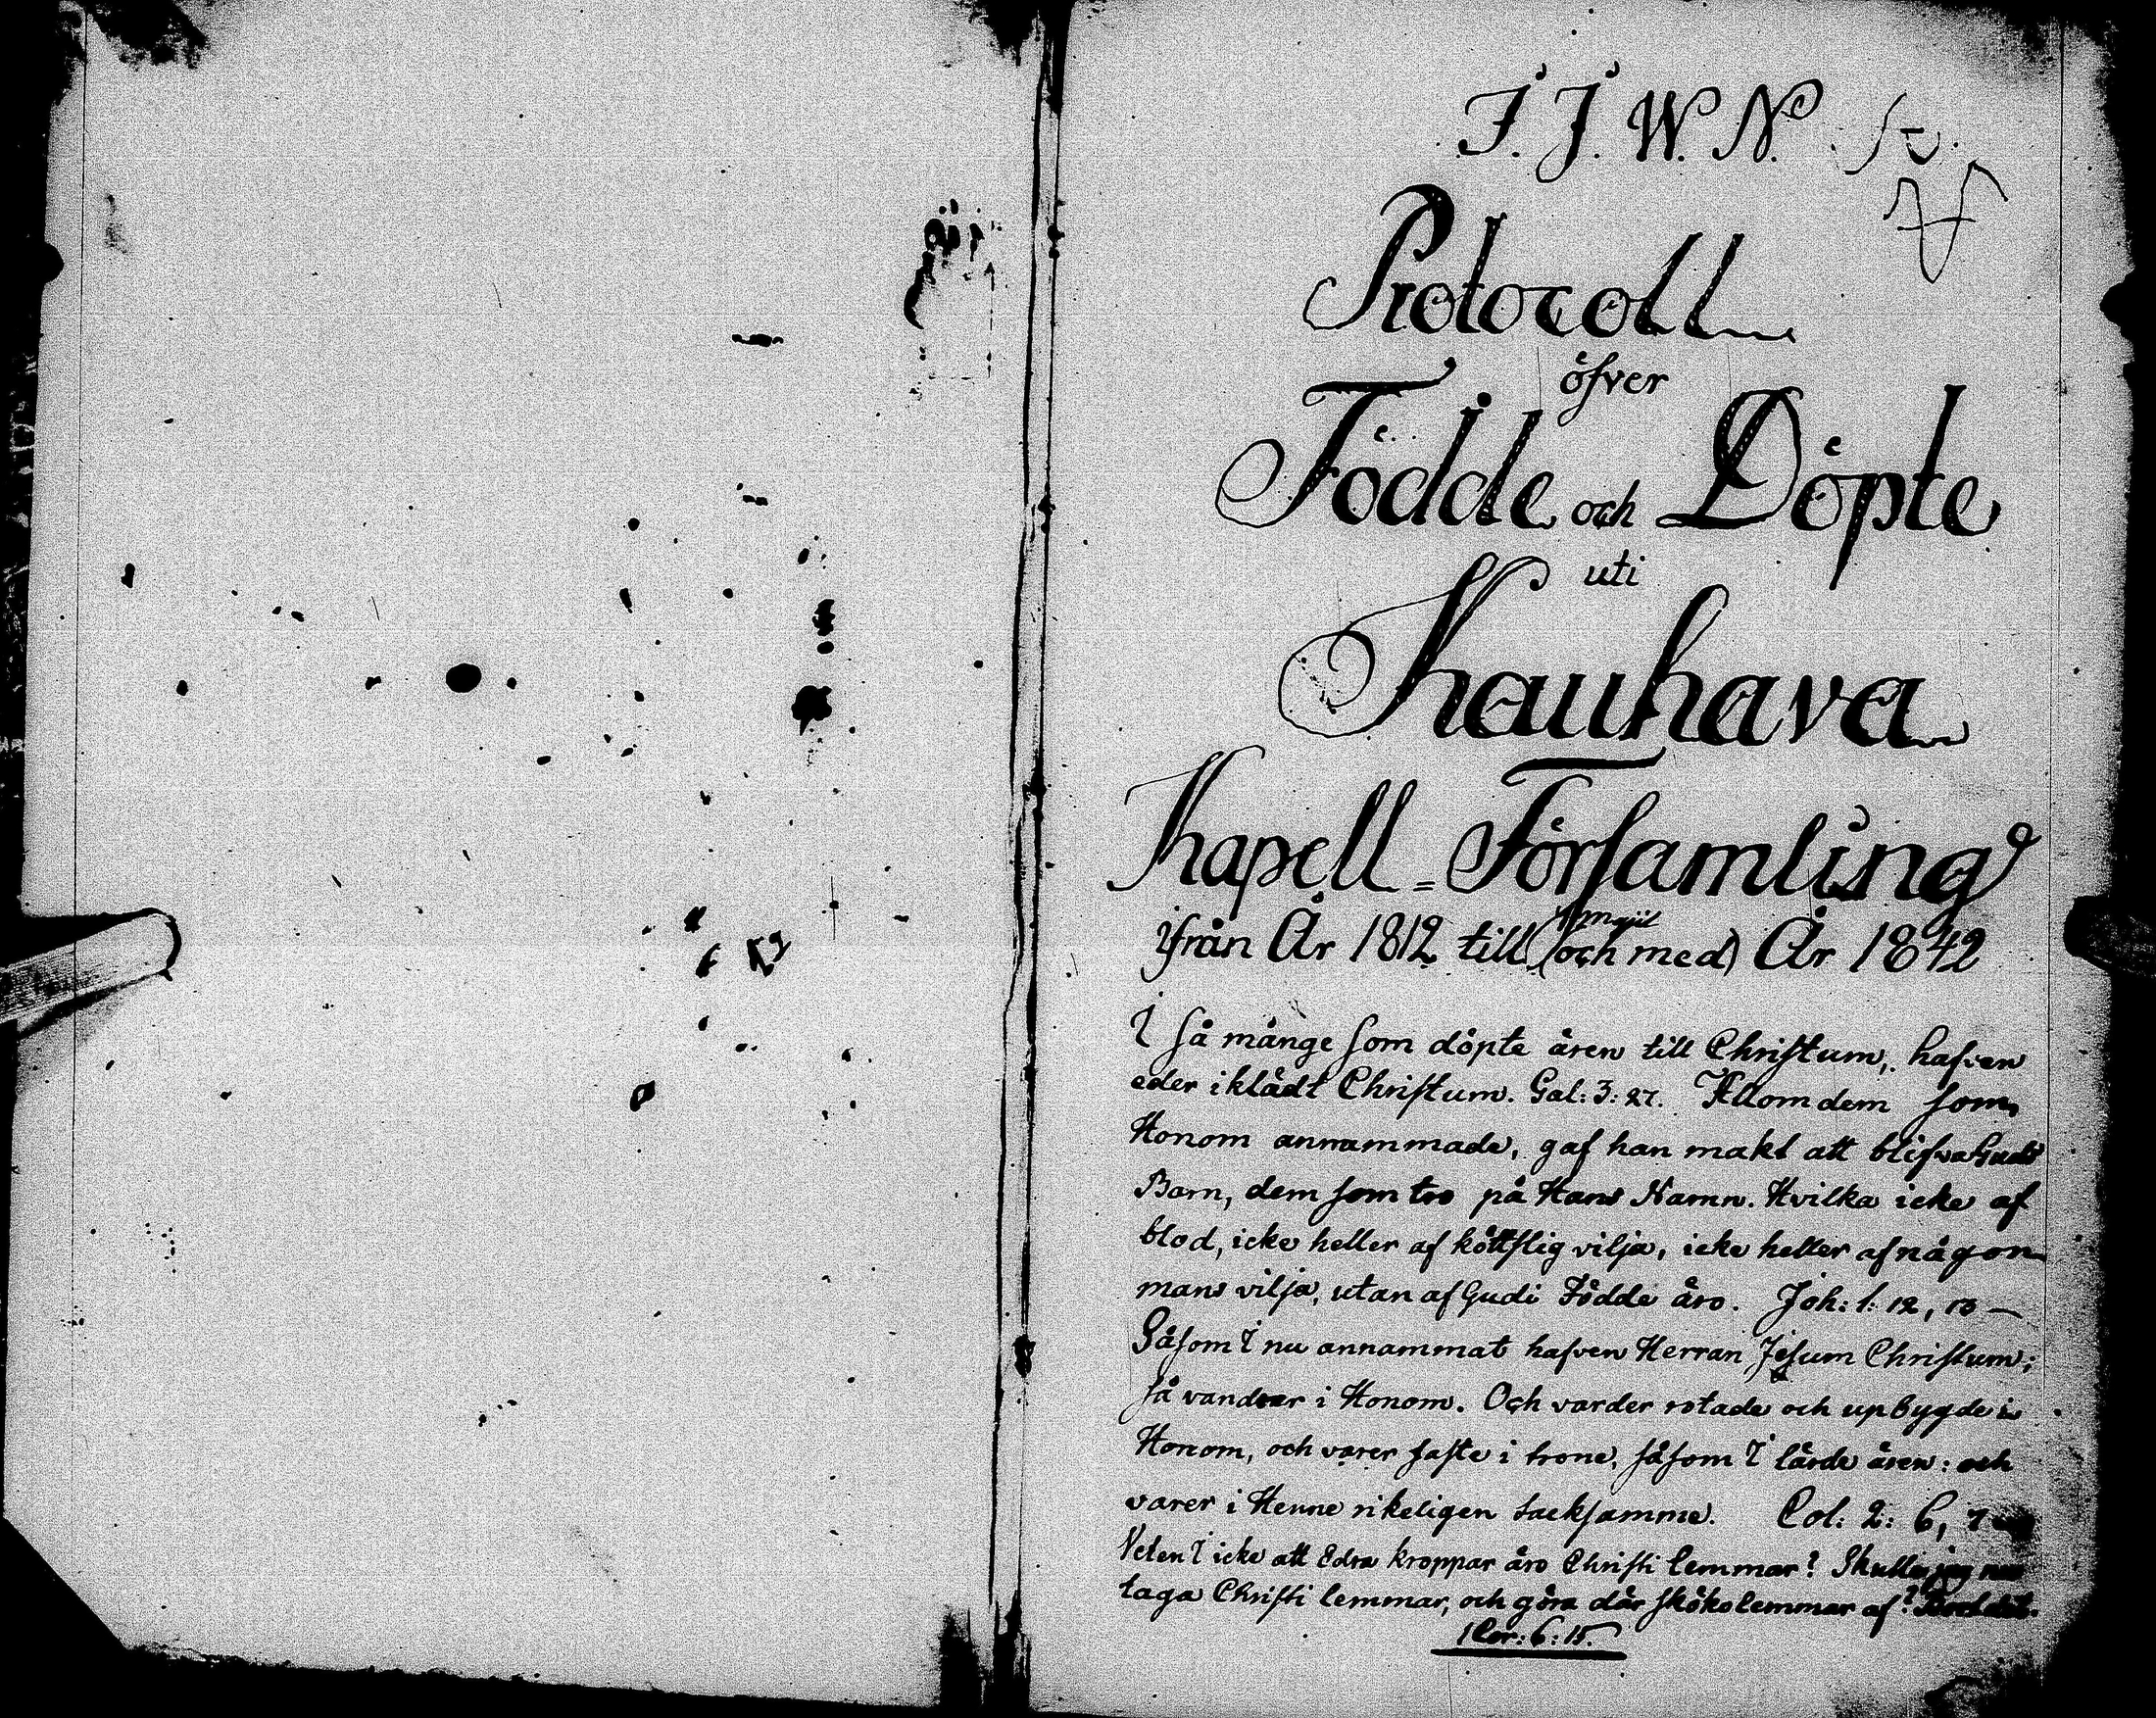 I. J. W. N.
Protocoll
öfver
Födde och Döpte
uti
Kauhava
Kapell-Församling
ifrån År 1812 till (och med) År 1842
I så månge som döpte ären till Christum, hafven
eder iklädt Christum. Gal: 3: 27. Allom dem som
Honom annammade, gaf han makt att blifva Guds
Barn, dem som tro på Hans Namn. Hvilka icke af
blod, icke heller af köttslig vilja, icke heller af någon
mans vilja, utan af Gudi Födde äro. Joh: 1: 12, 13 —
Såsom I nu annammat hafven Herran Jesum Christum;
så vandrer i Honom. Och varder rotade och upbygde i
Honom, och varer faste i trone, såsom I lärde ären: och
varer i Henne rikeligen tacksamme. Col: 2: 6, 7
Veten I icke att Edra kroppar äro Christi lemmar? Skulle jag nu
taga Christi lemmar, och göra där skökolemmar af?
1 Cor: 6: 15.